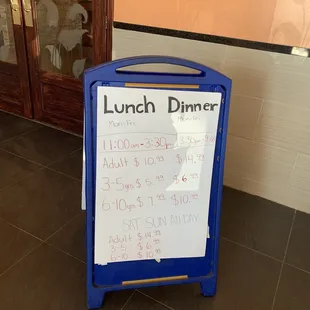 Lunch Dinner
Mon-Fri Mon-Fri
11:00am-3:30 3:30-9:
Adult $10.99 $14.99
3-5yrs $5.99 $6.99
6-10yrs $7.99 $10.99
SAT SUN All DAY
Adult $14.99
3-5 $6.99
6-10 $10.99